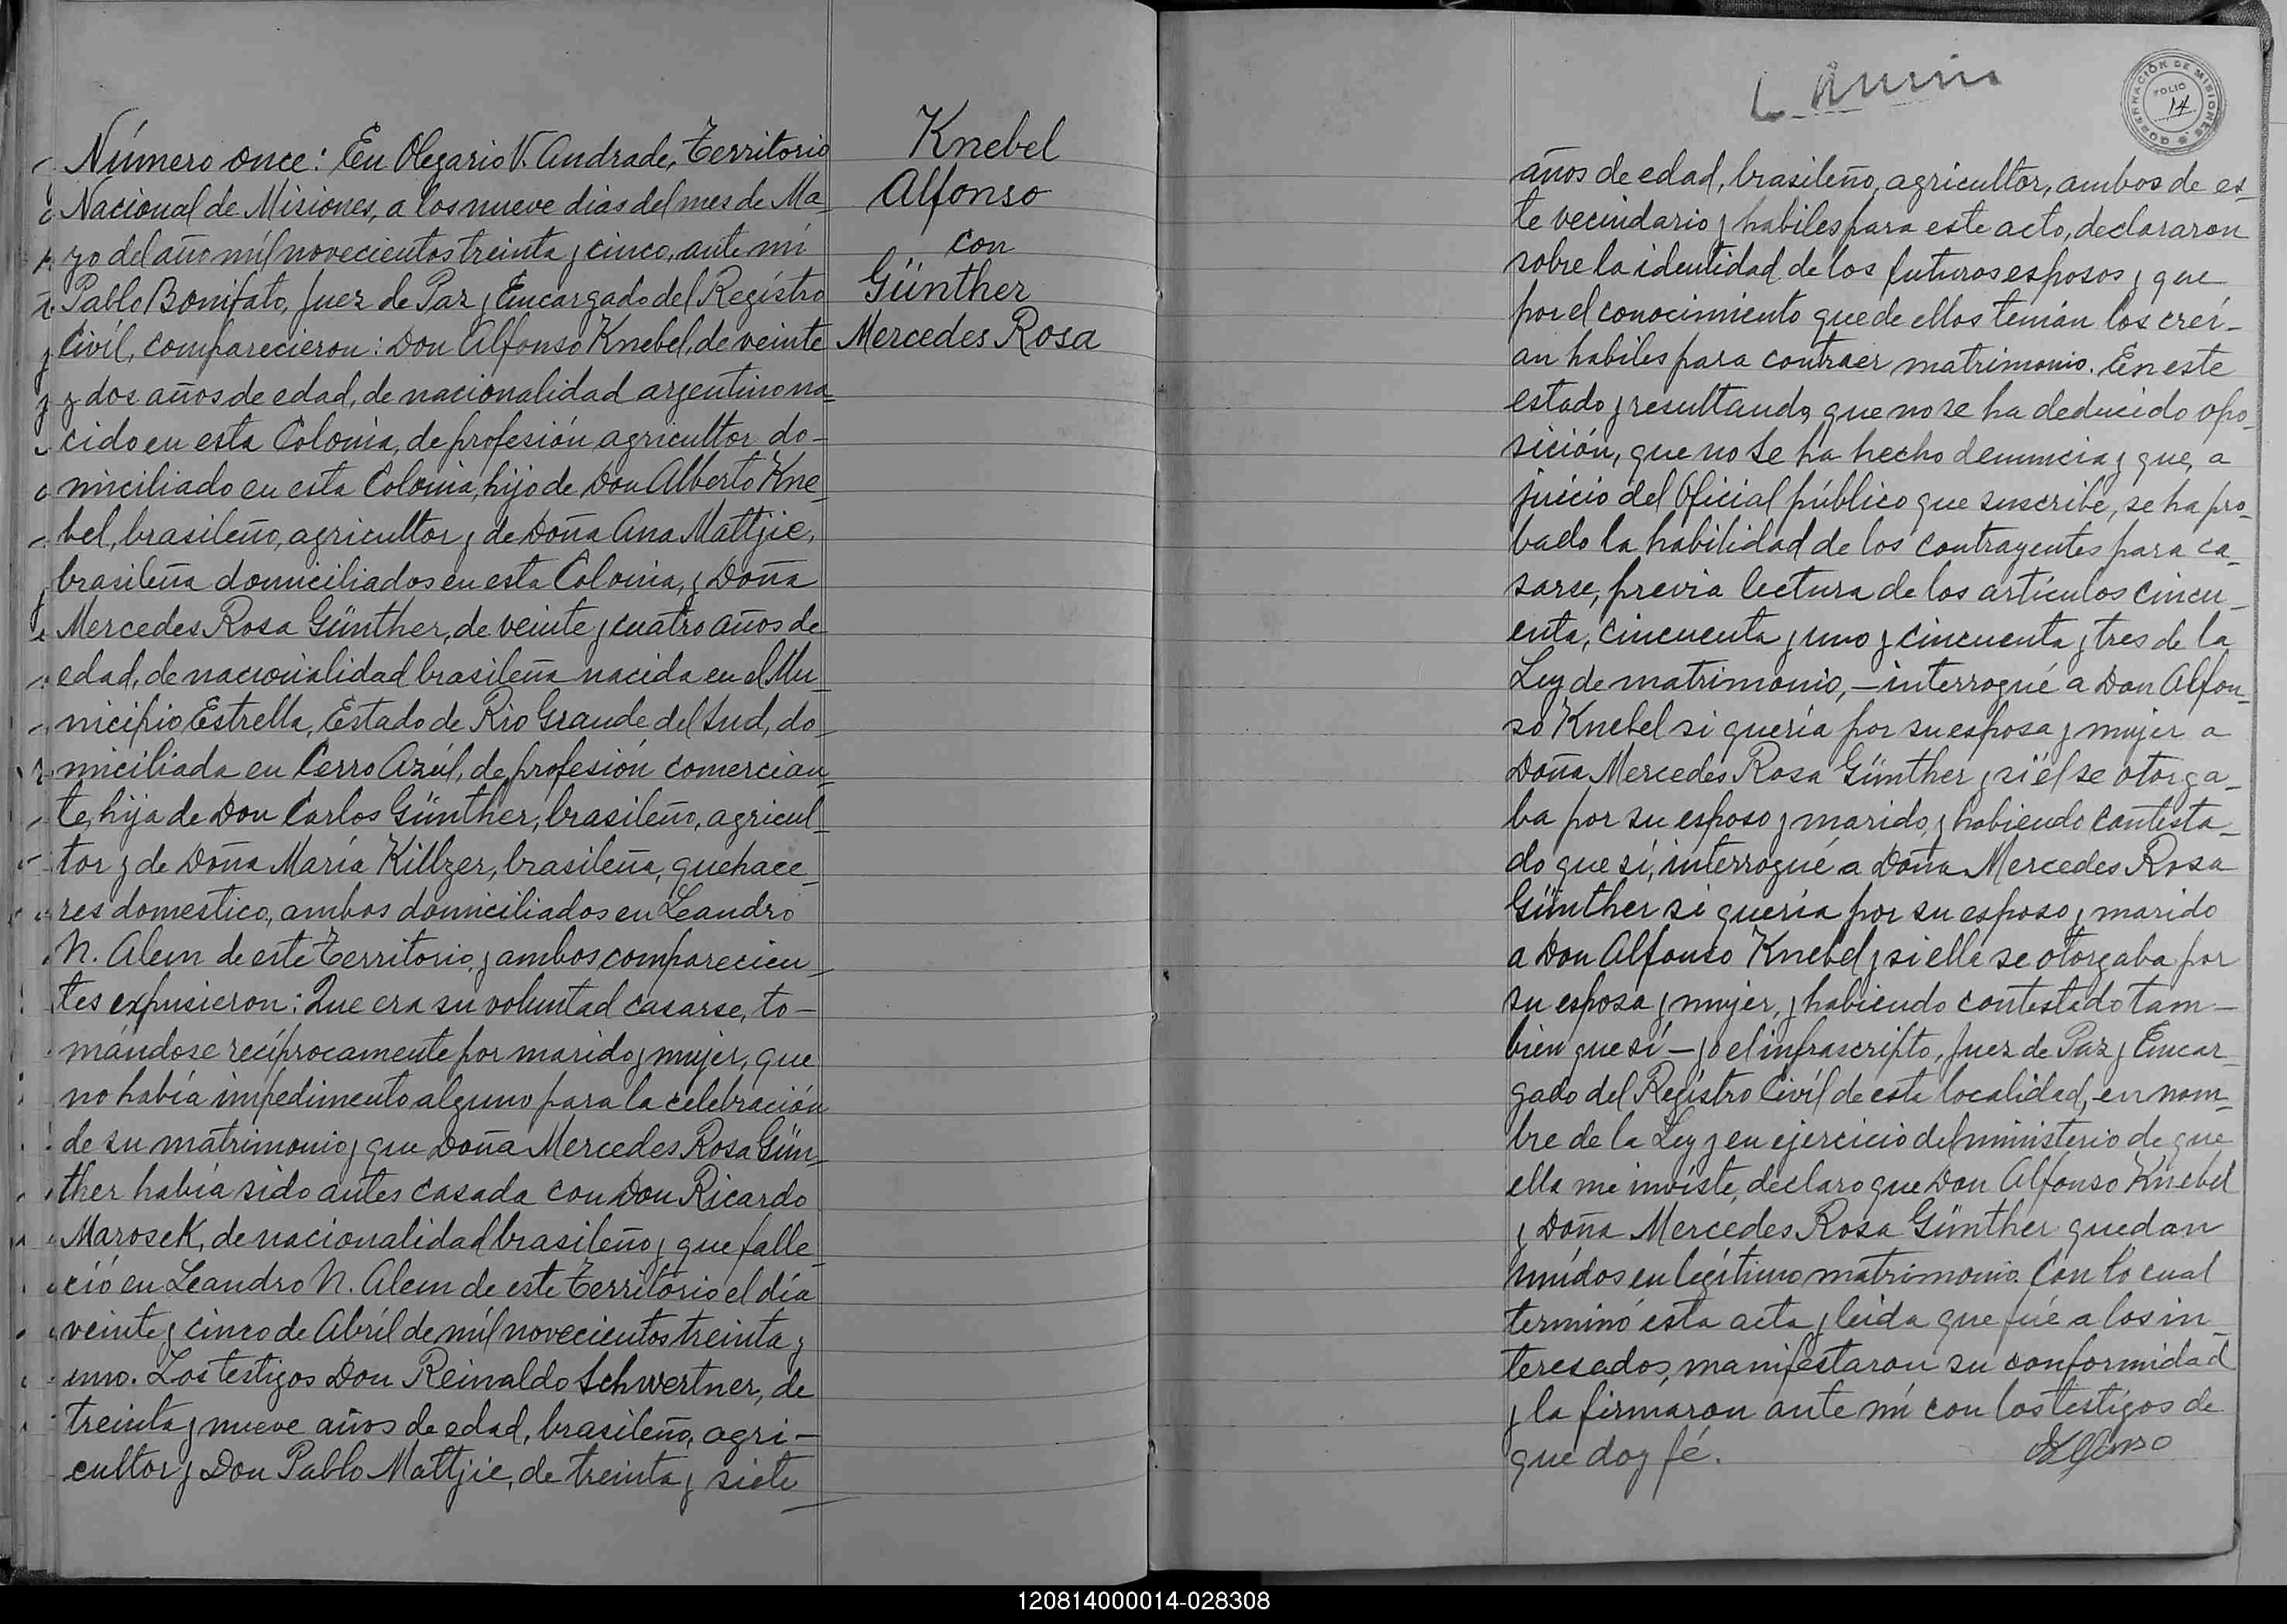 Número once: En Olegario V. Andrade, Territorio
Nacional de Misiones, a los nueve dias del mes de Ma-
zo del año mil novecientos treinta y cinco, ante mi
Pablo Bonifato, Juez de Paz y Encargado del Registro
Civil, comparecieron: Don Alfonso Knebel, de veinte
y dos años de edad, de nacionalidad argentino na-
cido en esta Colonia, de profesión agricultor do-
miciliado en esta Colonia, hijo de Don Alberto Kne-
bel, brasileño, agricultor y de Doña Ana Mattjie,
brasileña domiciliados en esta Colonia, y Doña
Mercedes Rosa Günther, de veinte y cuatro años de
edad, de nacionalidad brasileña nacida en el Mu-
nicipio Estrella, Estado de Rio Grande del Sud, do-
miciliada en Cerro Azúl, de profesión comercian-
te, hija de Don Carlos Günther, brasileño, agricul-
tor y de Doña María Killzer, brasileña, quehace-
res domestico, ambos domiciliados en Leandro
N. Alem de este Territorio, y ambos comparecien-
tes expusieron: Que era su voluntad casarse, to-
mándose recíprocamente por marido y mujer, que
no había impedimento alguno para la celebración
de su matrimonio y que Doña Mercedes Rosa Gün-
ther había sido antes casada con Don Ricardo
Marosek, de nacionalidad brasileño y que falle-
ció en Leandro N. Alem de este Territorio el día
veinte y cinco de Abril de mil novecientos treinta y
uno. Los testigos Don Reinaldo Schwertner, de
treinta y nueve años de edad, brasileño, agri-
cultor y Don Pablo Mattjie, de treinta y siete
Knebel
Alfonso
con
Günther
Mercedes Rosa
GOBERNACIÓN DE MISIONES
FOLIO
14
años de edad, brasileño, agricultor, ambos de es-
te vecindario y habiles para este acto, declararon
sobre la identidad de los futuros esposos y que
por el conocimiento que de ellos tenían los creí-
an habiles para contraer matrimonio. En este
estado y resultando que no se ha deducido opo-
sición, que no se ha hecho denuncia y que, a
juicio del Oficial público que suscribe, se ha pro-
bado la habilidad de los contrayentes para ca-
sarse, previa lectura de los artículos cincu-
enta, cincuenta y uno y cincuenta y tres de la
Ley de matrimonio, - interrogué a Don Alfon-
so Knebel si quería por su esposa y mujer a
Doña Mercedes Rosa Günther y si él se otorga-
ba por su esposo y marido, y habiendo contesta-
do que sí, interrogué a Doña Mercedes Rosa
Günther si quería por su esposo y marido
a Don Alfonso Knebel y si ella se otorgaba por
su esposa y mujer, y habiendo contestado tam-
bien que sí - yo el infrascripto, Juez de Paz y Encar-
gado del Registro Civil de esta localidad, en nom-
bre de la Ley y en ejercicio del ministerio de que
ella me inviste, declaro que Don Alfonso Knebel
y Doña Mercedes Rosa Günther quedan
unidos en legítimo matrimonio. Con lo cual
terminó esta acta y leida que fué a los in-
teresados, manifestaron su conformidad
y la firmaron ante mí con los testigos de
que doy fé. Alfonso
120814000014-028308